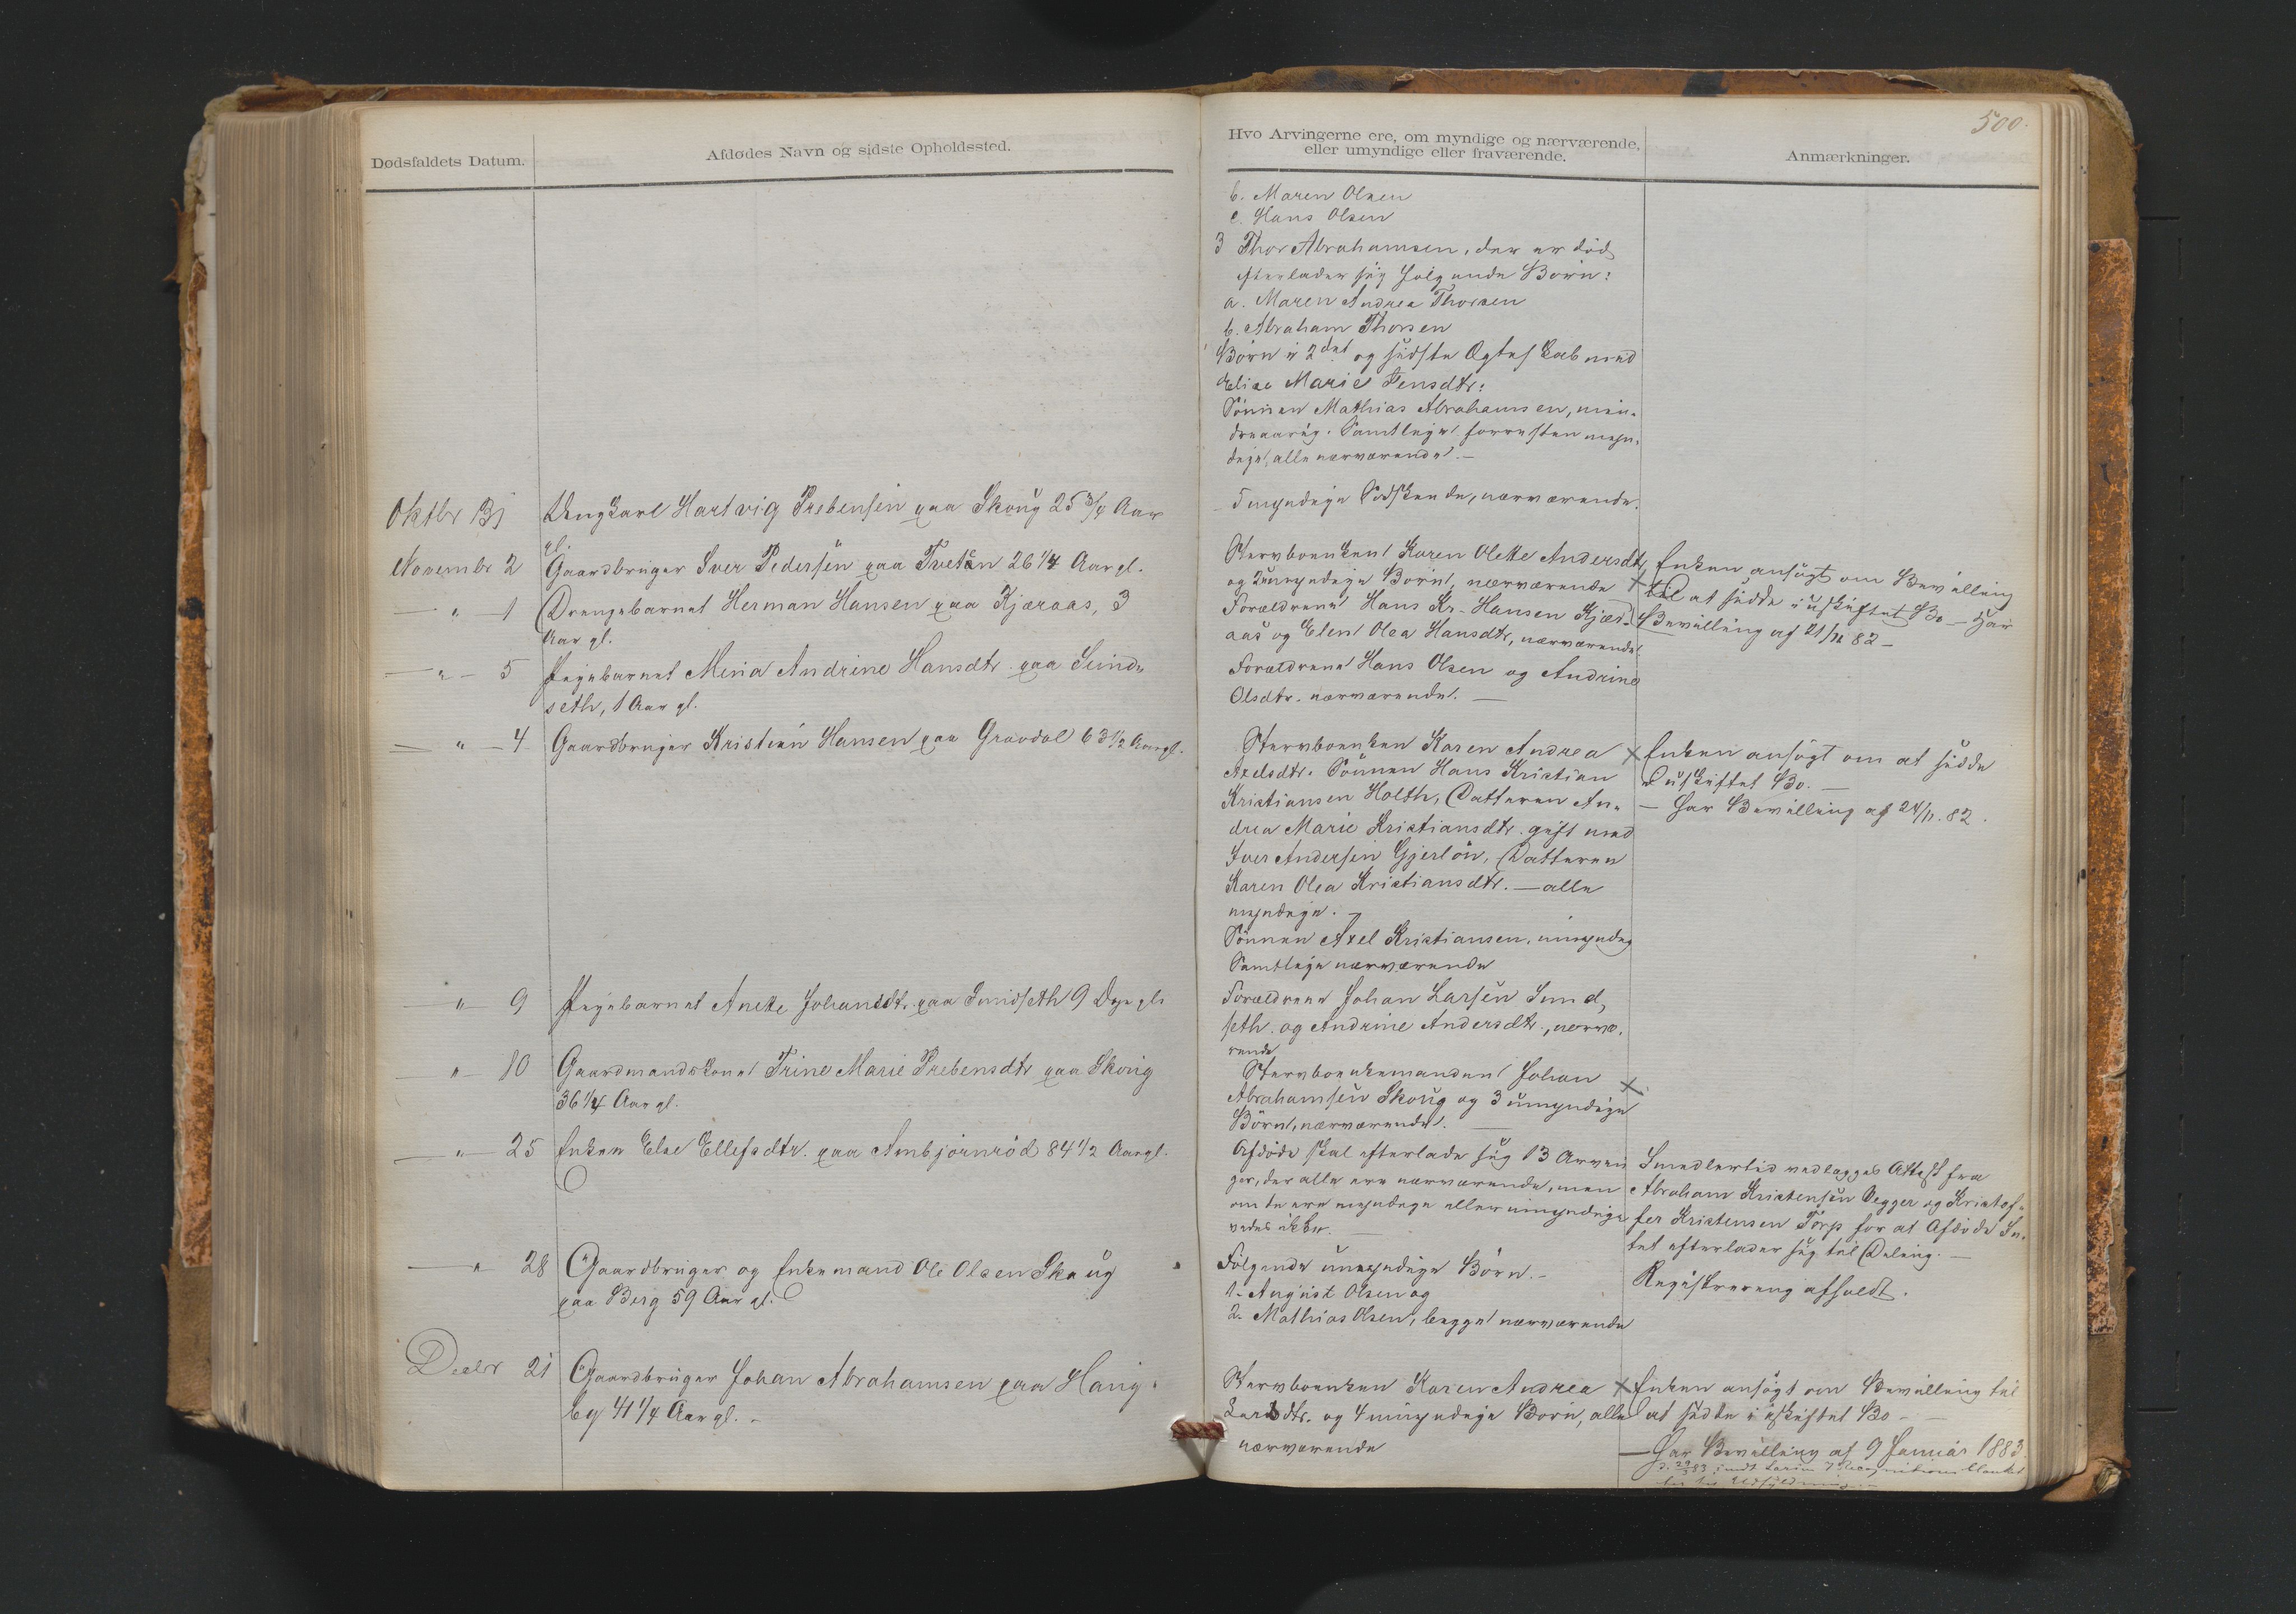 500.
Dødsfaldets Datum.
Afdødes Navn og sidste Opholdssted.
Hvo Arvingerne ere, om myndige og nærværende,
eller umyndige eller fraværende.
Anmærkninger.
b. Maren Olsen
c. Hans Olsen
3 Thor Abrahamsen, der er død
efterlader sig følgende Børn:
a. Maren Andrea Thorsen
b. Abraham Thorsen
Børn i 2det og sidste Ægteskab med
Elise Marie Jensdtr:
Sønnen Mathias Abrahamsen, min-
dreaarig. Samtlige forresten myn-
dige, alle nærværende. —
Oktbr 31
Ungkarl Hartvig Prebensen paa Skoug 25 3/4 Aar
gl.
5 myndige Sødskende, nærværende.
Novembr 2
Gaardbruger Iver Pedersen paa Tveten 26 1/4 Aar gl.
Stervboenken Karen Olette Andersdtr,
og 2 umyndige Børn, nærværende ×
Enken ansøgt om Bevilling
til at sidde i uskiftet Bo — Har
Bevilling af 21/11 82 —
— " — 1
Drengebarnet Herman Hansen paa Kjæraas, 3
Aar gl.
Forældrene Hans Kr. Hansen Kjær-
aas og Elen Olea Hansdtr, nærværende.
— " — 5
Pigebarnet Mina Andrine Hansdtr. paa Smid-
seth, 1 Aar gl.
Forældrene Hans Olsen og Andrine
Olsdtr. nærværende. —
— " — 4
Gaardbruger Kristian Hansen paa Gravdal 63 1/2 Aar gl.
Stervboenken Karen Andrea ×
Axelsdtr. Sønnen Hans Kristian
Kristiansen Holth, Datteren An-
drea Marie Kristiansdtr. gift med
Iver Andersen Gjerløu, Datteren
Karen Olea Kristiansdtr. — alle
myndige. —
Sønnen Axel Kristiansen, umyndig
Samtlige nærværende
Enken ansøgt om at sidde
i uskiftet Bo. —
— Har Bevilling af 24/11. 82.
— " — 9
Pigebarnet Anette Johansdtr. paa Smidseth 9 Dage gl.
Forældrene Johan Larsen Smid-
seth. og Andrine Andersdtr., nærvæ-
rende
— " — 10
Gaardmandskone Trine Marie Prebensdtr paa Skoug
36 1/4 Aar gl.
Stervboenkemanden Johan ×
Abrahamsen Skoug og 3 umyndige
Børn, nærværende. —
— " — 25
Enken Else Ellefsdtr. paa Ambjörnröd 84 1/2 Aar gl.
Afdøde skal efterlade sig 13 Arvin-
ger, der alle ere nærværende, men
om de ere myndige eller umyndige
vides ikke. —
Imidlertid vedlægges Attest fra
Abraham Kristensen Vegger og Kristof-
fer Kristensen Torp for at Afdøde In-
tet efterlader sig til Deling. —
— " 28
Gaardbruger og Enkemand Ole Olsen Skaug
paa Berg 59 Aar gl.
Følgende umyndige Børn. —
1. August Olsen og
2. Mathias Olsen, begge nærværende
Registrering afholdt.
Decbr 21
Gaardbruger Johan Abrahamsen paa Haug-
by 41 1/4 Aar gl. —
Stervboenken Karen Andrea ×
Larsdtr. og 4 umyndige Børn, alle
nærværende
Enken ansøgt om Bevilling til
at sidde i uskiftet Bo —
— Har Bevilling af 9 Januar 1883